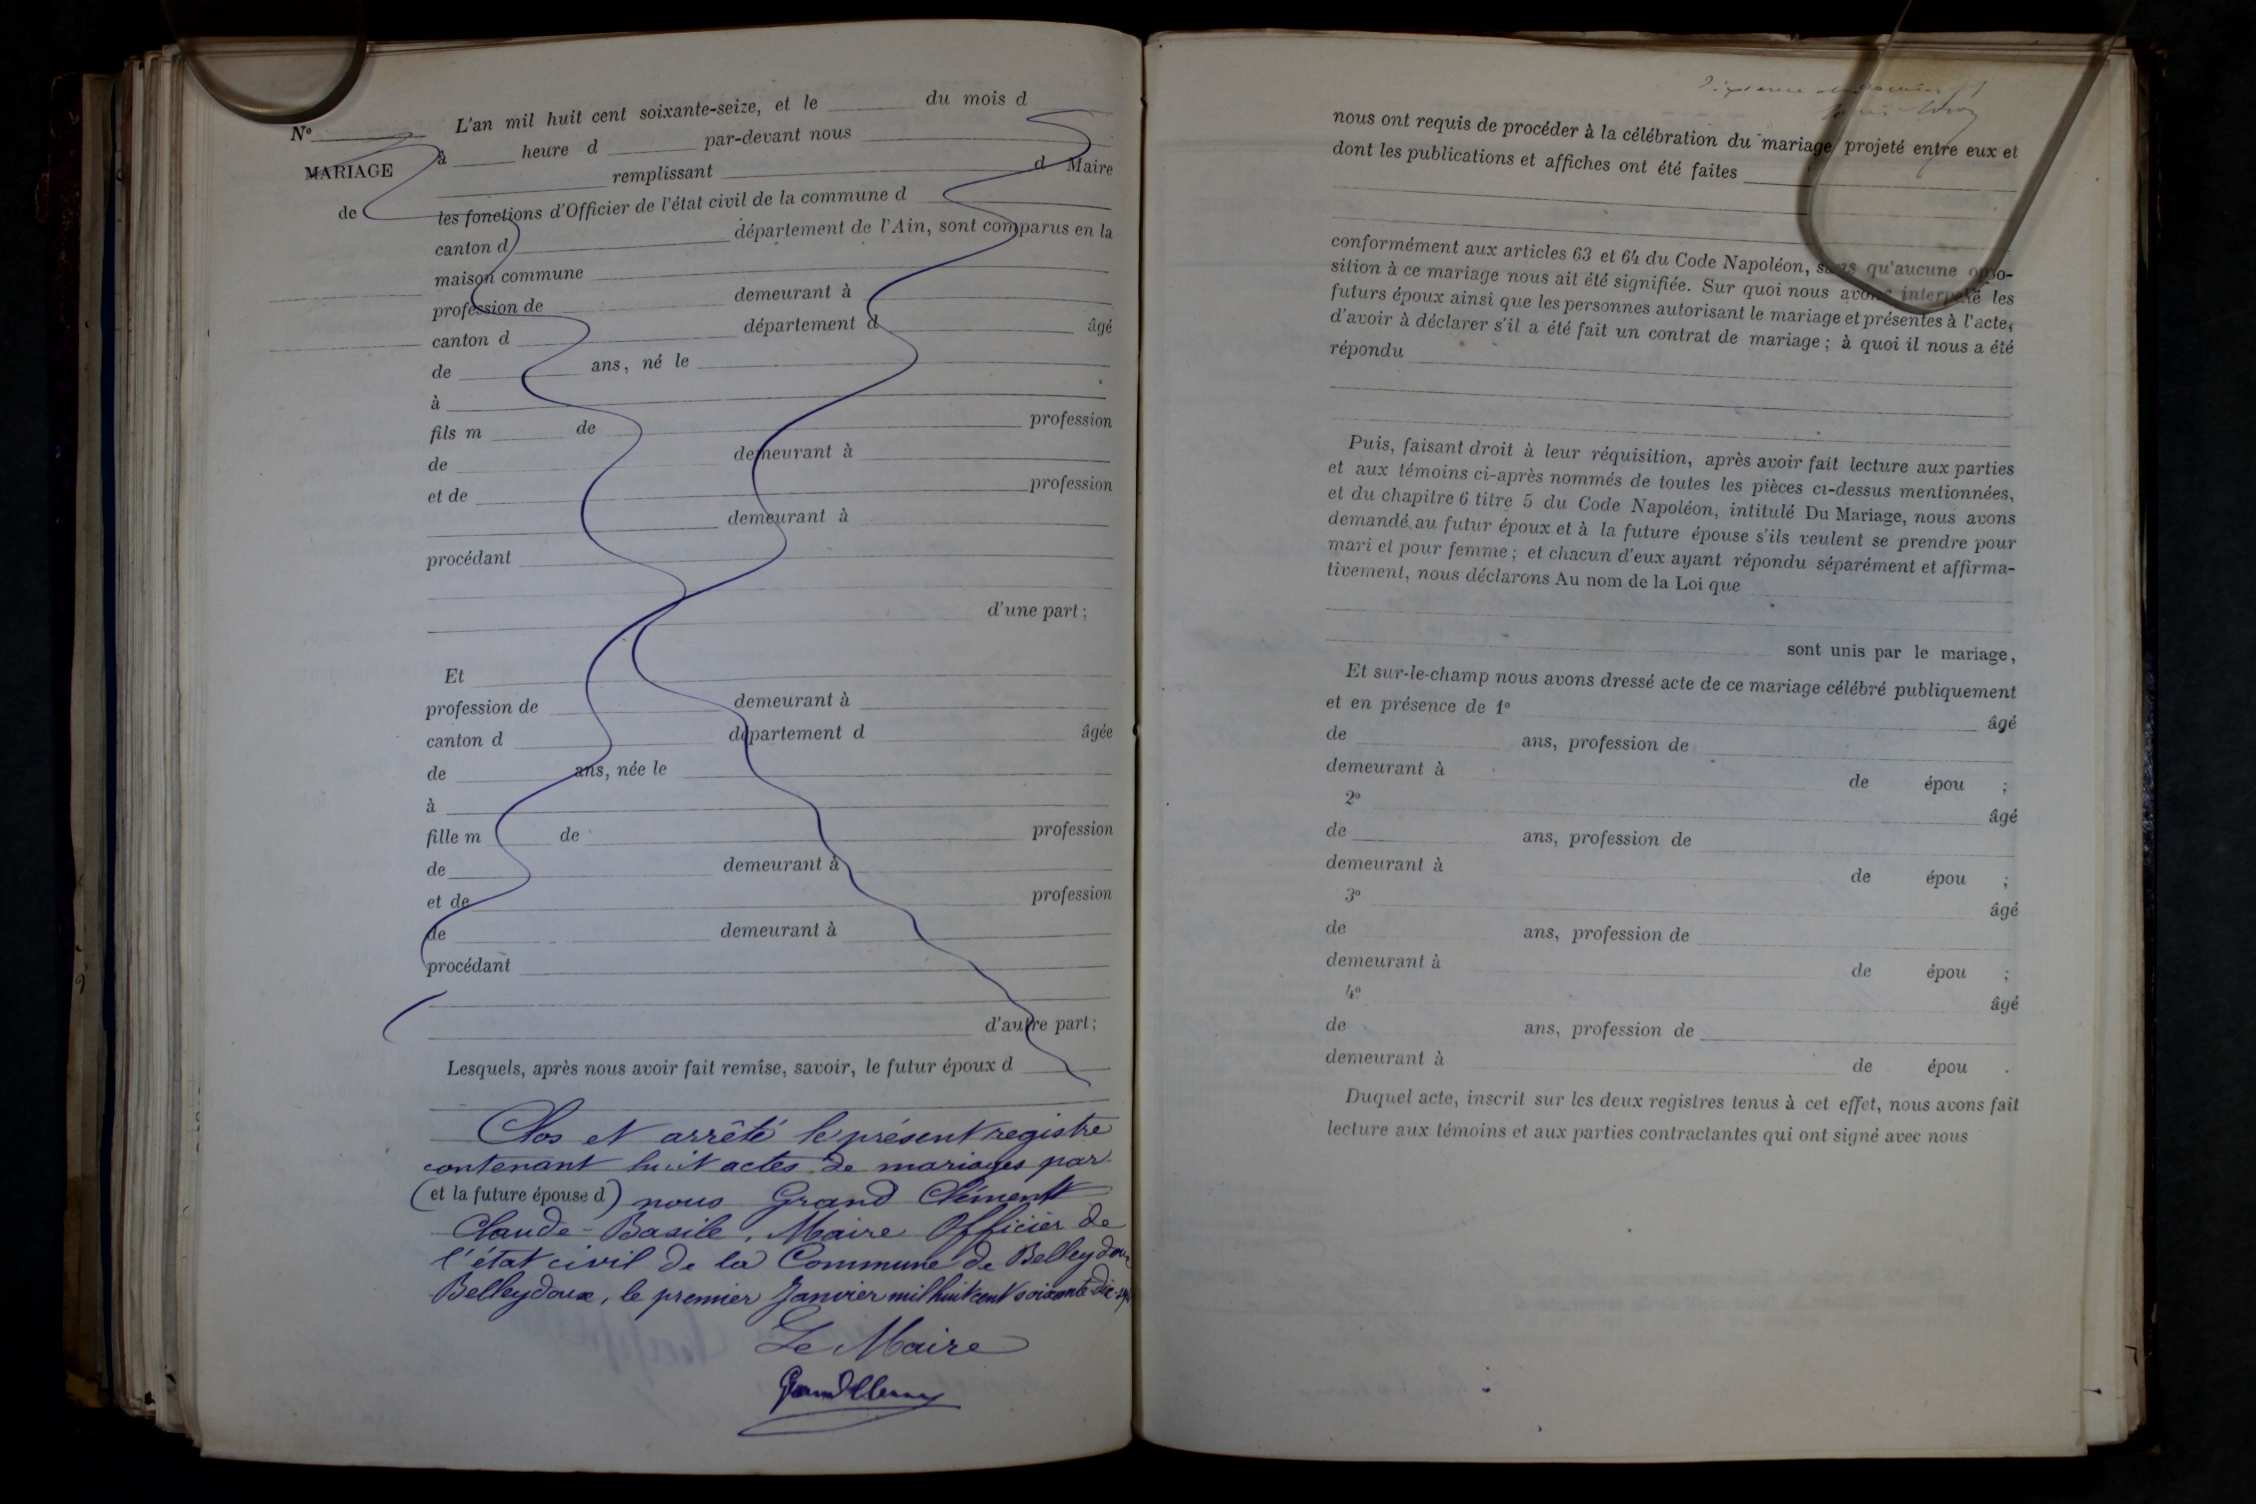 L'an mil huit cent soixante-seize, et le du mois d
N° à heure d par-devant nous
MARIAGE remplissant d Maire
de les fonctions d'Officier de l'état civil de la commune d
canton d département de l'Ain, sont comparus en la
maison commune
profession de demeurant à
canton d département d âgé
de ans, né le
à
fils m de profession
de demeurant à
et de profession
demeurant à
procédant
d'une part;
Et
profession de demeurant à
canton d département d âgée
de ans, née le
à
fille m de profession
de demeurant à
et de profession
de demeurant à
procédant
d'autre part;
Lesquels, après nous avoir fait remise, savoir, le futur époux d
Clos et arrêté le présent registre
contenant huit actes de mariages par
(et la future épouse d) nous Grand Clément
Claude-Basile, Maire Officier de
l'état civil de la Commune de Belleydoux
Belleydoux, le premier Janvier mil huit cent soixante-dix-sept
Le Maire
GrandClément
nous ont requis de procéder à la célébration du mariage projeté entre eux et
dont les publications et affiches ont été faites
conformément aux articles 63 et 64 du Code Napoléon, sans qu'aucune oppo-
sition à ce mariage nous ait été signifiée. Sur quoi nous avons interpellé les
futurs époux ainsi que les personnes autorisant le mariage et présentes à l'acte,
d'avoir à déclarer s'il a été fait un contrat de mariage; à quoi il nous a été
répondu
Puis, faisant droit à leur réquisition, après avoir fait lecture aux parties
et aux témoins ci-après nommés de toutes les pièces ci-dessus mentionnées,
et du chapitre 6 titre 5 du Code Napoléon, intitulé Du Mariage, nous avons
demandé au futur époux et à la future épouse s'ils veulent se prendre pour
mari et pour femme; et chacun d'eux ayant répondu séparément et affirma-
tivement, nous déclarons Au nom de la Loi que
sont unis par le mariage,
Et sur-le-champ nous avons dressé acte de ce mariage célébré publiquement
et en présence de 1° âgé
de ans, profession de
demeurant à de épou ;
2° âgé
de ans, profession de
demeurant à de épou ;
3° âgé
de ans, profession de
demeurant à de épou ;
4° âgé
de ans, profession de
demeurant à de épou .
Duquel acte, inscrit sur les deux registres tenus à cet effet, nous avons fait
lecture aux témoins et aux parties contractantes qui ont signé avec nous